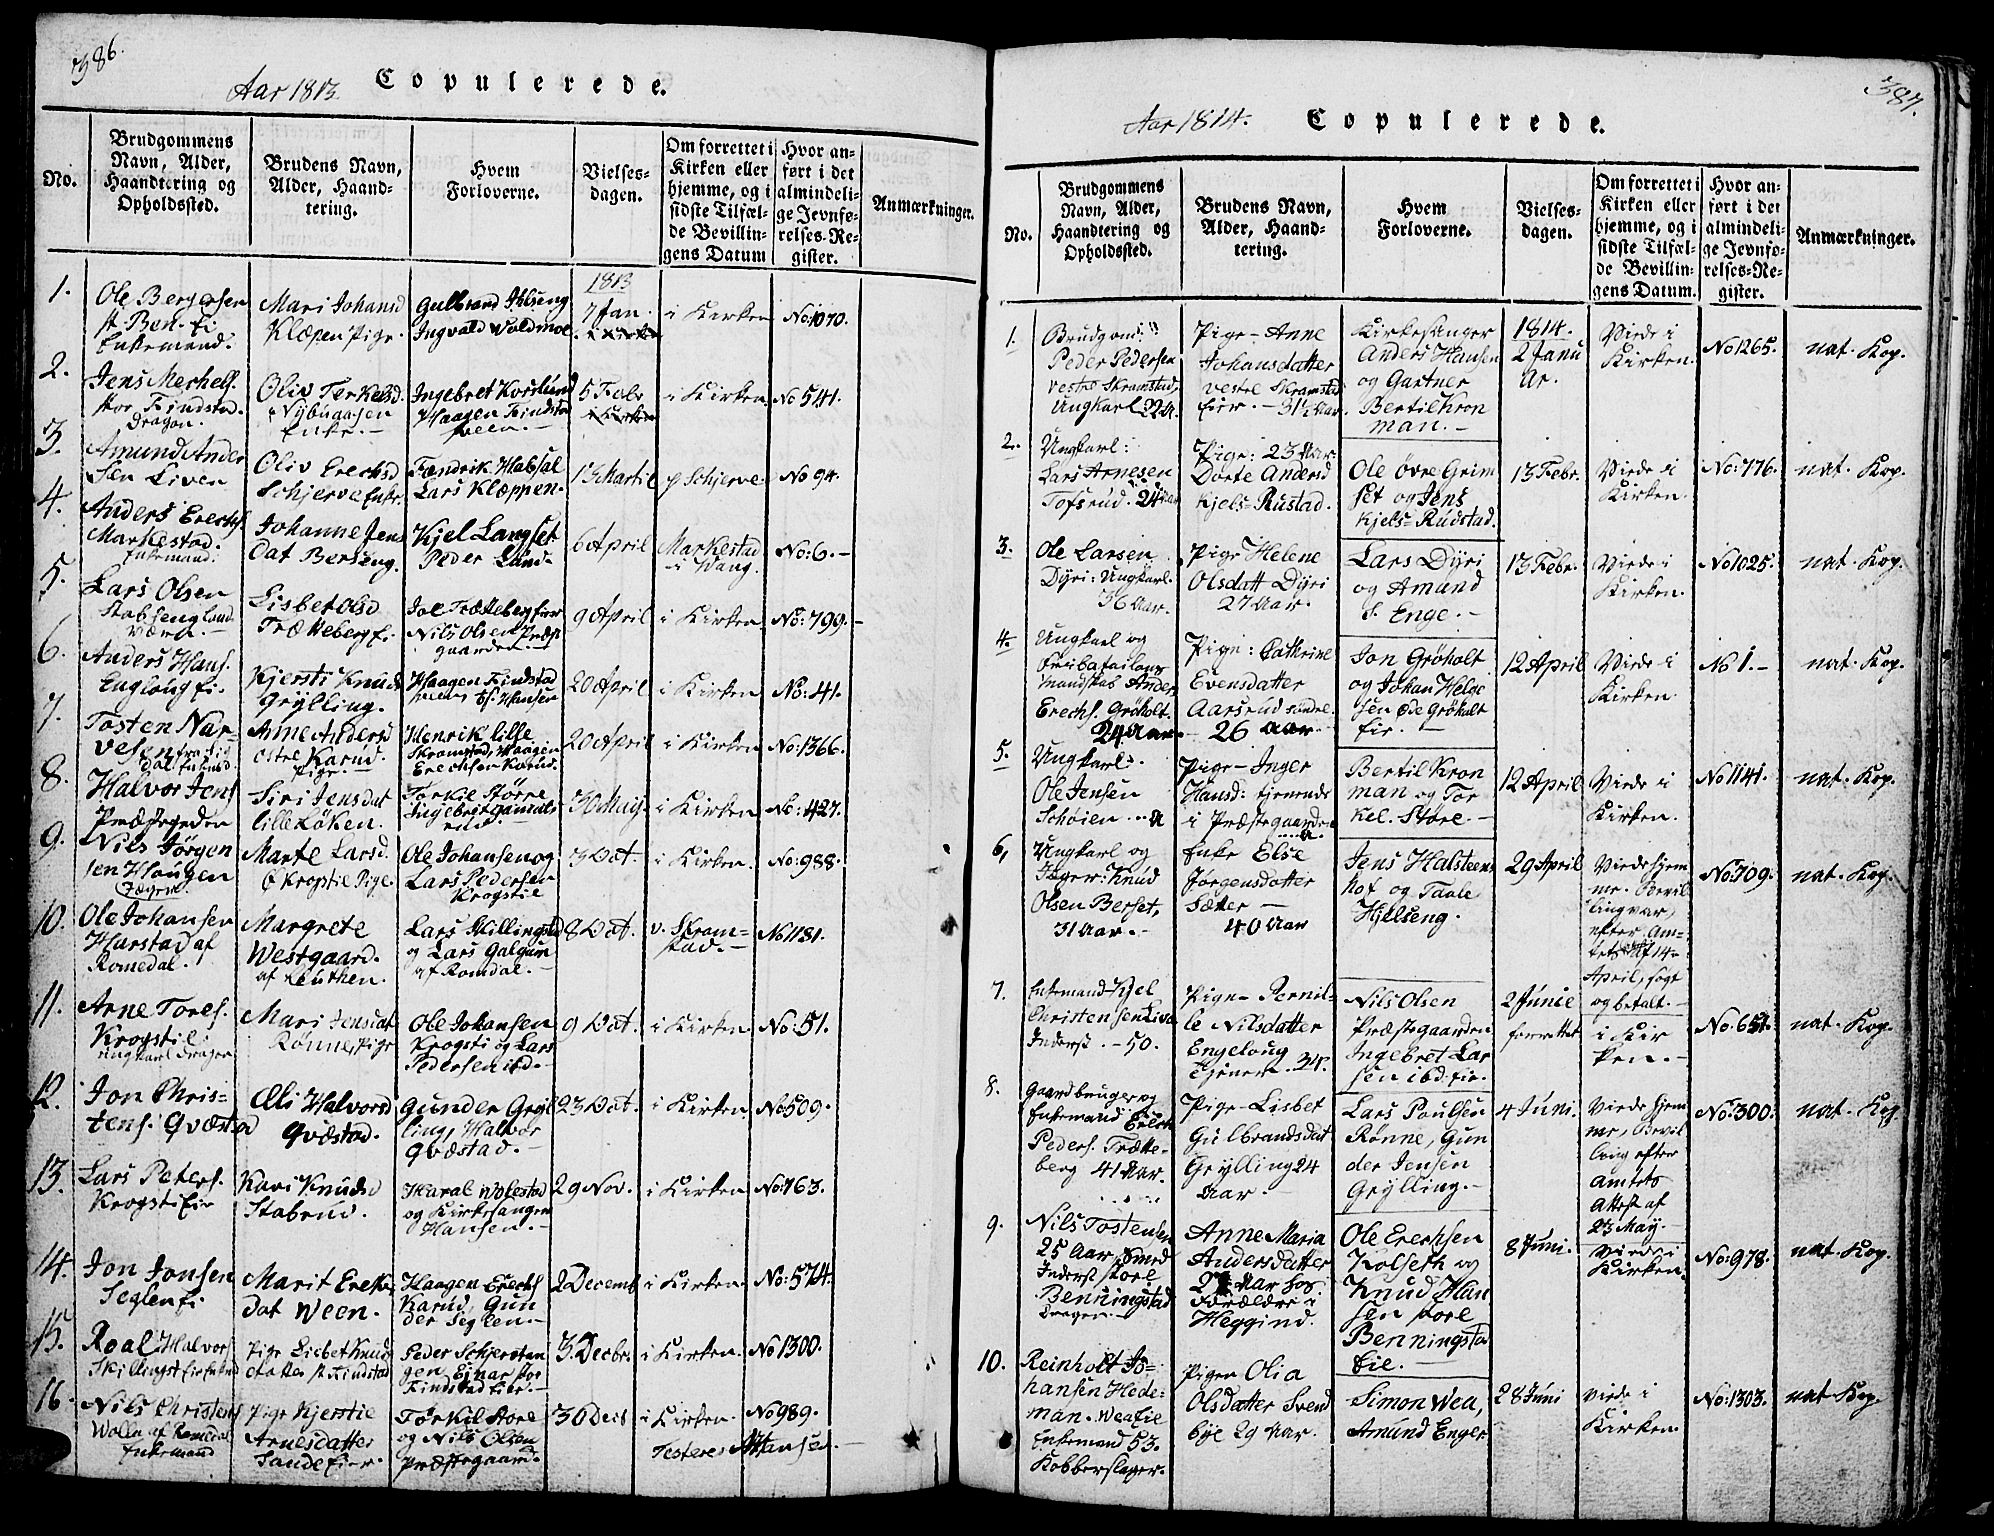 386.
Aar 1813. Copulerede.
No.
Brudgommens
Navn, Alder,
Haandtering og
Opholdssted.
Brudens Navn,
Alder, Haand-
tering.
Hvem
Forloverne.
Vielses-
dagen.
Om forrettet i
Kirken eller
hjemme, og i
sidste Tilfæl-
de Bevillin-
gens Datum
Hvor an-
ført i det
almindeli-
ge Jevnfø-
relses-Re-
gister.
Anmærkninger.
1.
Ole Bergersen
st. Ben. Ei
Enkemand.
Mari Johansd
Klæpen Pige.
Gulbrand Jelseng
Ingvald Woldmoe
1813
7 Jan.
i Kirken
No: 1070.
2.
Jens Mechels.
stor Findstad.
Dragon.
Oliv Terkelsd
Nybugaasen
Enke.-
Ingebret Korslund
Haagen Findstad
5 Febr
i Kirken
No 541.
3.
Amund Ander
sen Liven
Oliv Erechsd
Schjerve Enke.
Fændrik Habsal
Lars Klæppen.
13 Martii
p Schjerve
No 94.
4.
Anders Erechs.
Markestad.
Enkemand.
Johanne Jens
dat Berseng.
Kjel Langset
Peder Lund.
6 April
Markestad
i Wang.
No: 6.-
5.
Lars Olsen
Stabseng Land
Værn.-
Lisbet Olsd
Trætteberg Ei.
Joe Trætteberg Eier
Nils Olsen Præst
gaarden.
9 April
i Kirken
No: 799.
6.
Anders Hans.
Engloug Ei.
Kjersti Knuds
Grylling.
Haagen Findstad
Hansen
20 April
i Kirken
No: 41.
7.
Tosten Nar-
vesen fra Lid
dal. Enkmd.
Anne Andersd
østre Karud.
Pige.-
Henrik lille
Skramstad, Haagen
Erechsen Karud.
20 April
i Kirken
No: 1366.
8.
Halvor Jens
Præstegeden
Siri Jensdat
lille Løken.
Torkil Større
Ingebret gammels
rud.
30 Maij.
i Kirken
No: 427.
9.
Nils Jörgen
sen Haugen
Jæger.
Marte Larsd.
Kroptie Pige
Ole Johansen og
Lars Pedersen
Krogstie
3 Oct.
i Kirken
No: 988.
10.
Ole Johansen
Harstad af
Romedal.
Margrete
Westgaard.
af Leuthen.
Lars Millingstad
og Lars Galgum
af Romdal.-
8 Oct.
v. Skram-
stad.-
No 1181.
11.
Arne Tores.
Krogstil
ungkarl Dragon
Mari Jensdat
Rønne, Pige
Ole Johansen
Krogsti og Lars
Pedersen ibd.-
9 Oct.
i Kirken
No: 51.
12.
Jon Chris-
tens. Qvæstad
Oeli Halvorsd
Qvæstad.
Gunder Gryl
ling, Halvor
Qvæstad.-
23 Oct.
i Kirken
No 509.
13.
Lars Peters.
Krogsti Eie
Kari Knudsd
Stabrud.
Haral Wolestad
og Kirkesanger
Hansen.-
29 Nov.
i Kirken
No: 763.
14.
Jon Jonsen
Seglen Ei
Marit Erechs
dat Ween.
Haagen Erechs
Karud, Gun
der Seglen.-
2 Decemb
i Kirken
No: 574.
15.
Roal Halvors
Skillingst Eie Enkmd
Pige Lisbet Knuds
datter st Findstad
Peder Schjerstan
gen Einar stor
Findstad Eier.-
3. Decbr.
i Kirken
No 1300.
16.
Nils Christens
Wolen af Romedal
Enkemand
Pige Kjerstie
Arnesdatter
Sande Eier.-
Törkil Store
og Nils Olsen
Præstegaard.
30 Decb
i Kirken
No 989.
Testeres AHansen.
387.
Aar 1814. Copulerede.
No.
Brudgommens
Navn, Alder,
Haandtering og
Opholdssted.
Brudens Navn,
Alder, Haand-
tering.
Hvem
Forloverne.
Vielses-
dagen.
Om forrettet i
Kirken eller
hjemme, og i
sidste Tilfæl-
de Bevillin-
gens Datum.
Hvor an-
ført i det
almindeli-
ge Jevnfø-
relses-Re-
gister.
Anmærkninger.
1.
Brudgom:
Peder Pedersen
vestre Skramstad,
Ungkarl 32 A.
Pige - Anne
Johansdatter
vestre Skramstad
Eier. - 31½ Aar.
Kirkesanger
Anders Hansen
og Gartner
Bertil Kron
man.-
1814.
2 Janu
ar.
Viede i
Kirken.
No 1265.
nat. Kop.
2.
Ungkarl:
Lars Arnesen
Tofsrud. 24 Aar
Pige: 23 Aar
Dorte Andersd
Kjels=Rustad.
Ole övre Grim
set og Jens
Kjels=Rudstad.
13 Febr.
Viede i
Kirken.
No: 776.
nat. Kop.
3.
Ole Larsen
Dyri: Ungkarl.
36 Aar.
Pige Helene
Olsdatt Dyri
27 Aar.
Lars Dyri
og Amund
S. Enge.-
13 Febr.
Viede i
Kirken.
No 1025.
nat. Kop.
4.
Ungkarl og
Fribatailons
mandskab Anders
Erechs. Gröholt.
24 Aar.
Pige: Cathrine
Evensdatter
Aarsrud
26 Aar.
Jon Gröholt
og Johan Helge
sen Øde Gröholt
Eie.-
12 April
Viede i
Kirken.
No 1.-
nat. Kop.
5.
Ungkarl:
Ole Jensen
Schöien
Pige - Inger
Hansd: tjenende
i Præstegaarden
Bertil Kron
man og Tor
kel. Störe.-
12 April
Viede i
Kirken.
No 1141.
nat. Kop.
6.
Ungkarl og
Jæger: Knud
Olsen Berset,
31 Aar.-
Enke Else
Jørgensdatter
Sætter -
40 Aar
Jens Halsteens
hof og Taale
Hjelseng.
29 April
Viede hjem
me. Bevil
ling var,
efter Am-
tets af 14
April, søgt
og betalt.-
No: 709.
nat. Kop.
7.
Enkemand Kjel
Christensen Live
Inderst.-50.
Pige - Pernil-
le Nilsdatter
Engeloug
Tjener. 34.
Nils Olsen
Præstegaarden
Ingebret Lar
sen ibd. Eie.
2 Junie
forrettet
i Kir
ken.-
No. 651.
nat. Kop.
8.
Gaardbruger og
Enkemand Erech
Peders. Trætte-
berg 41 Aar.
Pige - Lisbet
Gulbrandsdat
Grylling 24
Aar.-
Lars Poulsen
Rønne, Gun
der Jensen
Grylling.-
4 Juni.
Viede hjem
me, Bevil
ling efter
Amtets
Attest af
23 May.-
No: 300.
nat. Kop
9.
Nils Tostensen
25 Aar, Smed
Inderst store
Benningstad
Dragon.
Anne Maria
Andersdatter
27 Aar hos
Forældre i
Heggind.
Ole Erechsen
Kolseth og
Knud Han
sen store
Benningstad
Eie.-
8 Juni.
Viede i
Kirken.
No: 978.
nat. Kop.
10.
Reinholt Jo=
hansen Hede=
man. Wea Eie
Enkemand 53.
Kobberslager.
Pigen Olia
Olsdatter Svend
bye 29 Aar.
Simon Wea,
Amund Enger
28 Juni
Viede i
Kirken.
No: 1303.
nat. Kop.